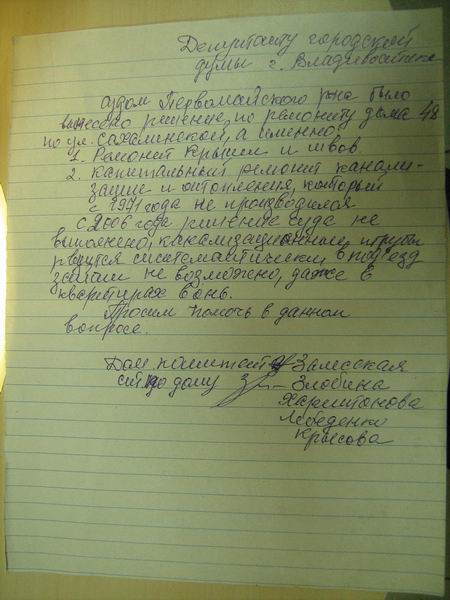 Депутату городской
думы г. Владивостока
судом Первомайского р-на было
вынесено решение, по ремонту дома 48
по ул. Сахалинской, а именно;
1. Ремонт крыши и швов.
2. капитальный ремонт канали-
зации и отопления, который
с 1971 года не производился
с 2006 года решение суда не
выполнено, канализационные трубы
рвутся систематически, в подъезд
зайти не возможно, даже в
квартирах вонь.
Просим помочь в данном
вопросе.
Дом. комитет Залесская
ст. по дому Злобина
Харитонова
Лебеденко
Крысова